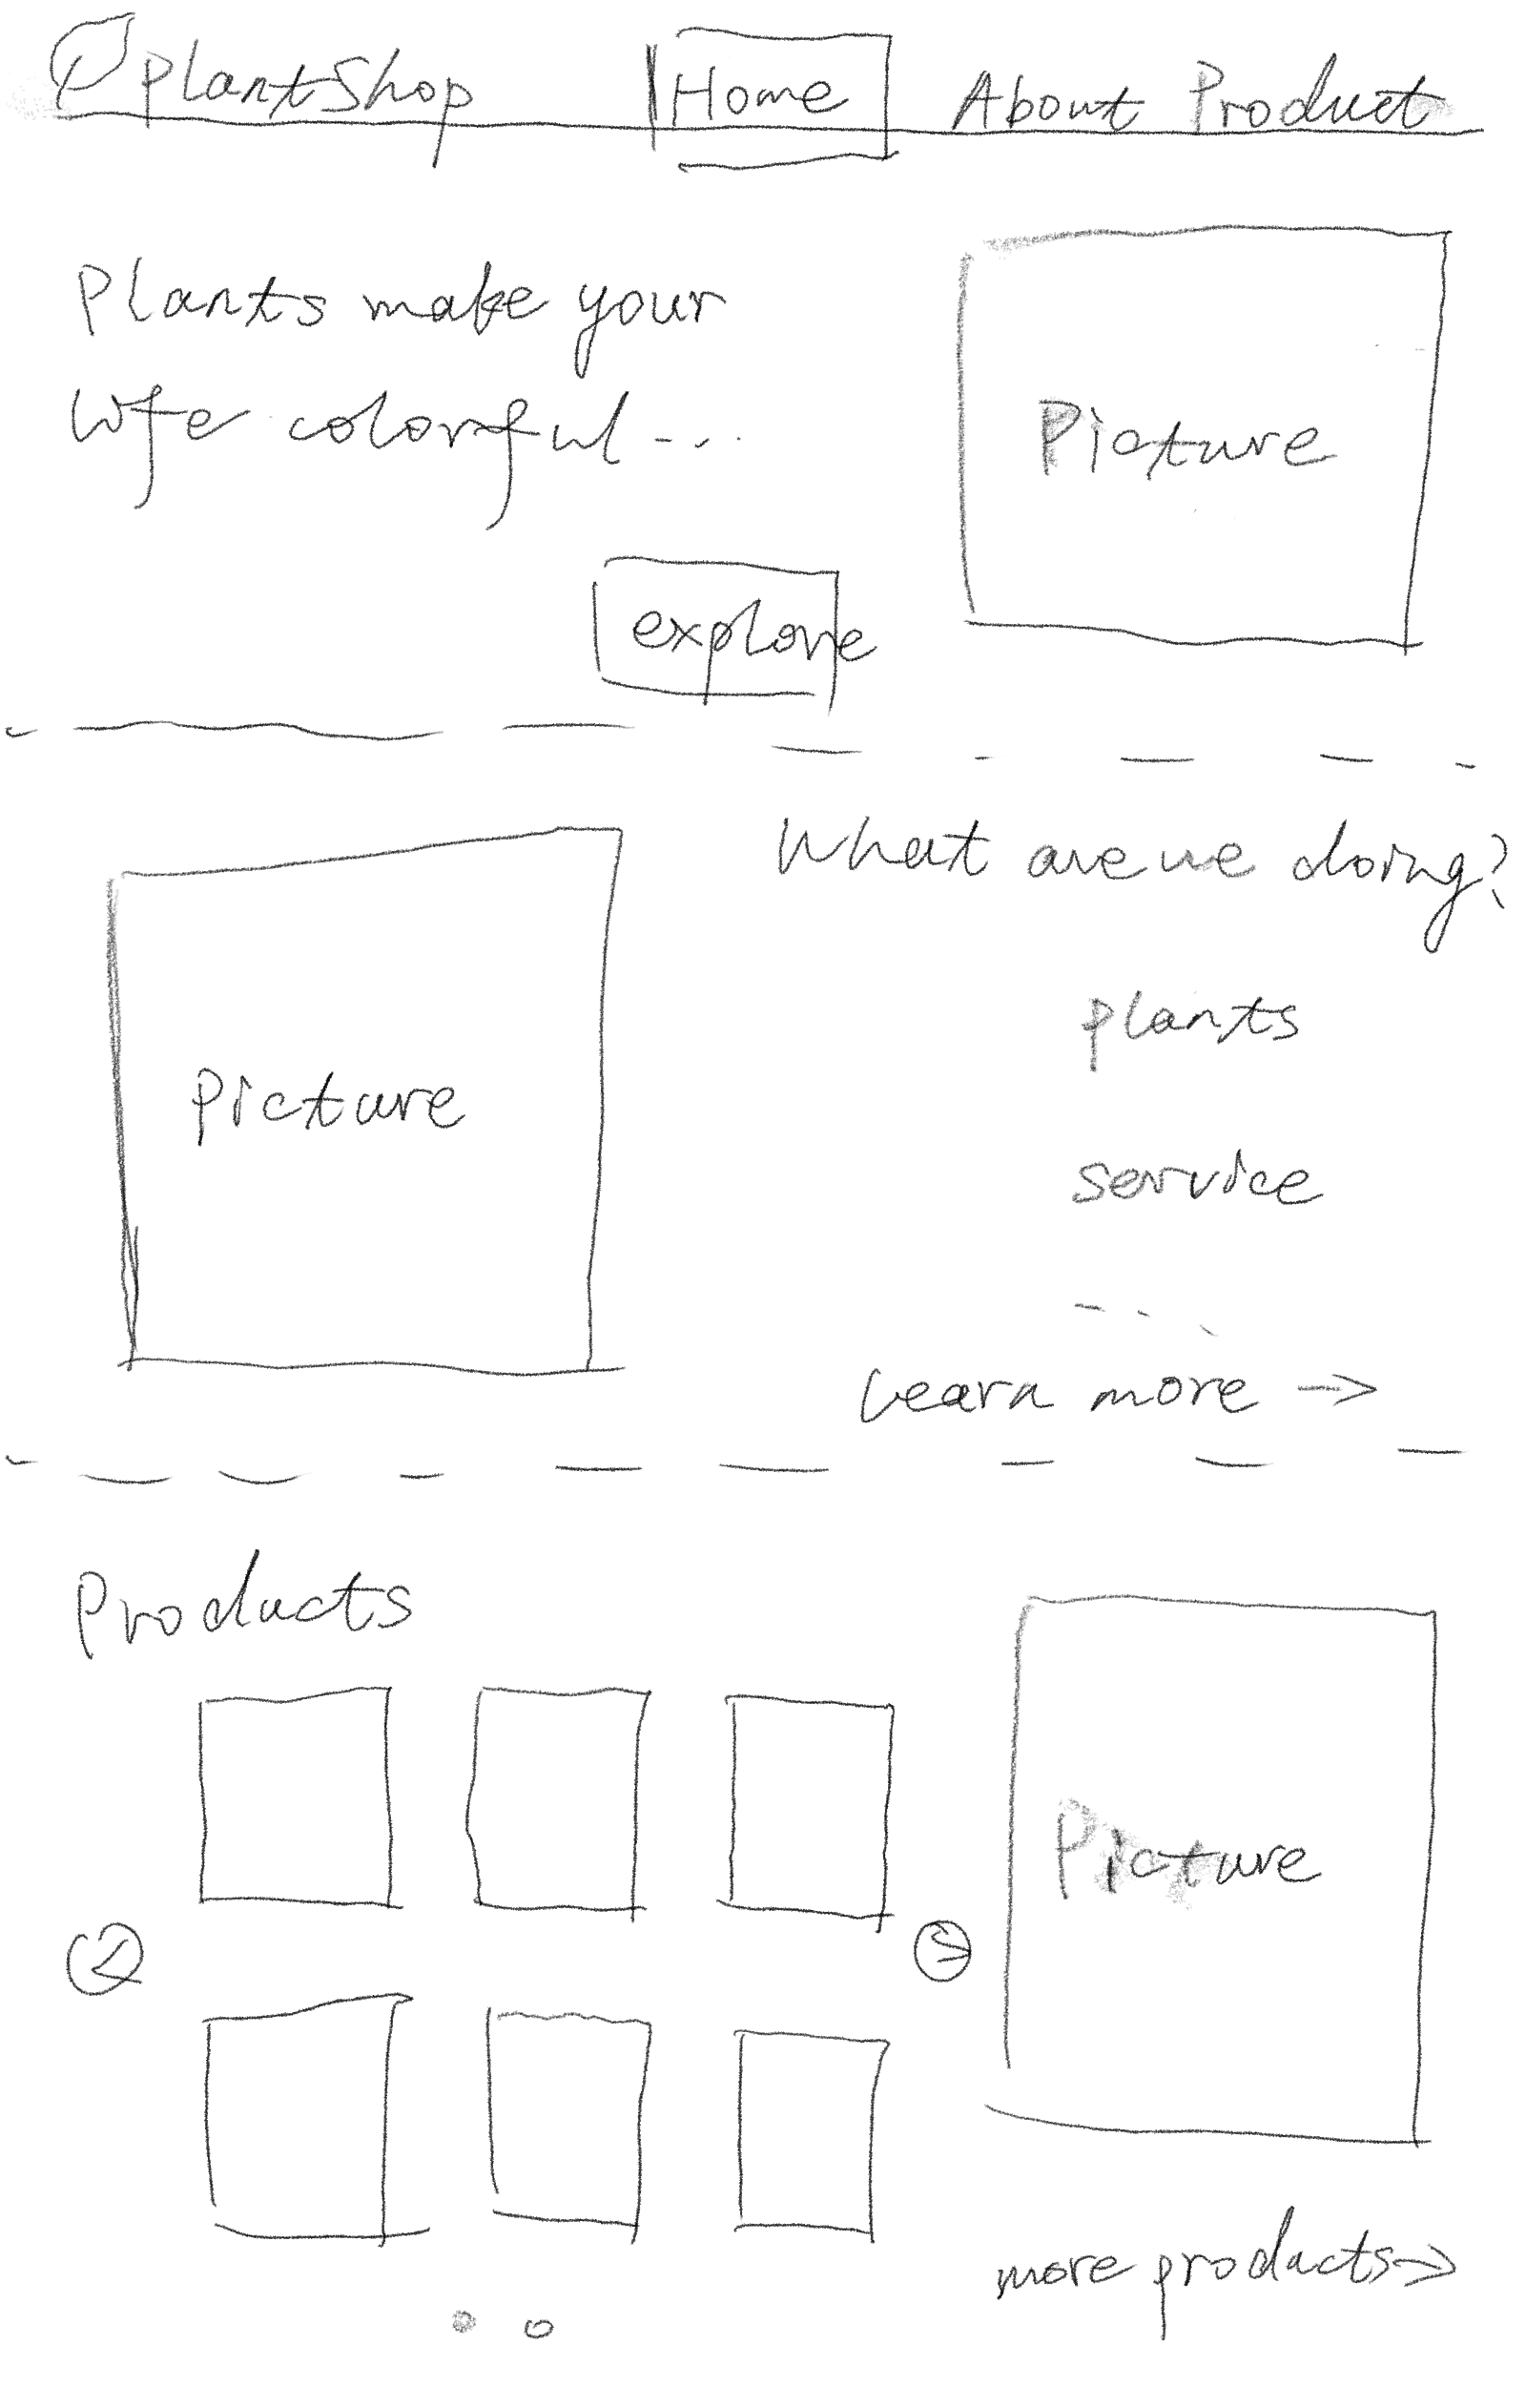 PlantShop Home About Product
Plants make your
life colorful ...
Picture
explore
What are we doing?
plants
Picture
service
...
Learn more →
Products
Picture
more products→